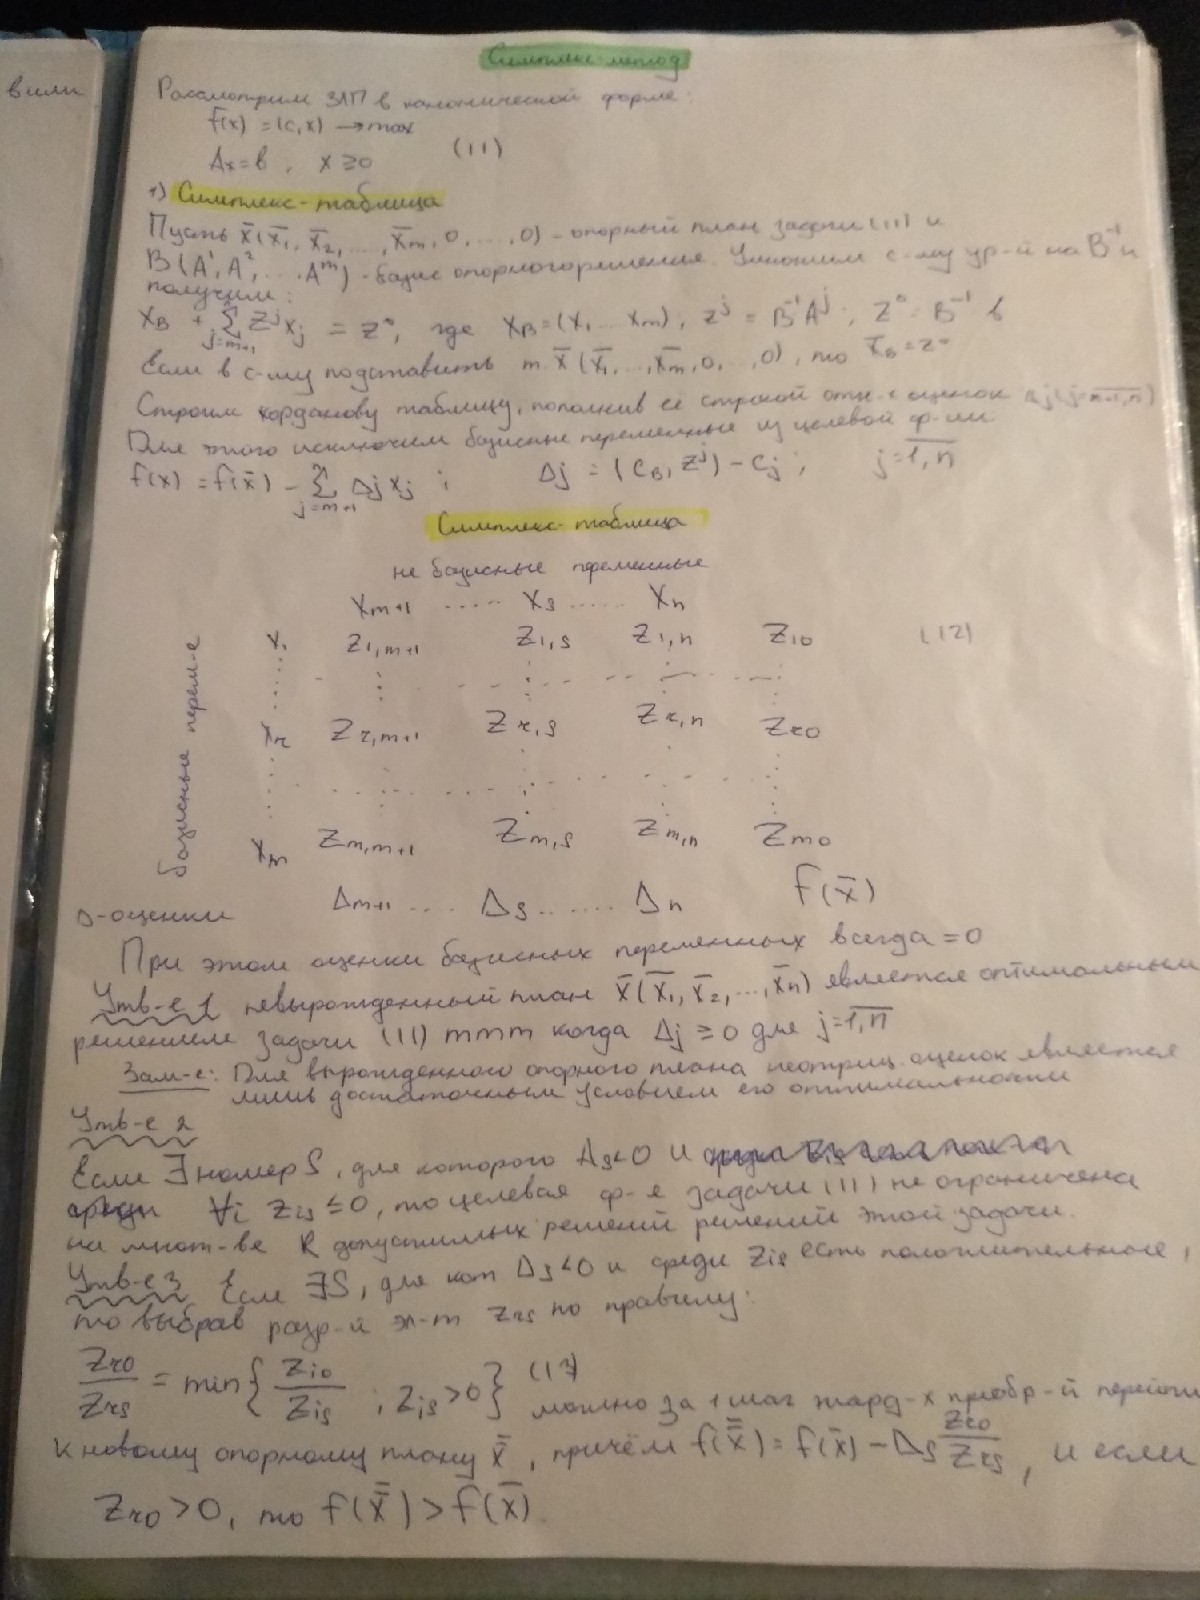 вили
Симплекс-метод
Рассмотрим ЗЛП в канонической форме:
f(x) = (c,x) → max
Ax = b, x ≥ 0 (11)
1) Симплекс-таблица
Пусть x̄(x̄₁, x̄₂, ..., x̄m, 0, ..., 0) - опорный план задачи (11) и
B(A¹, A², ... Aᵐ) - базис опорного решения. Умножим с-му ур-й на B⁻¹ и
получим:
x_B + Σ_{j=m+1}^{n} Z^j x_j = Z⁰, где x_B = (x₁ ... xm), Z^j = B⁻¹A^j; Z⁰ = B⁻¹ b
Если в с-му подставить т. x̄(x̄₁, ..., x̄m, 0, ..., 0), то x̄_B = Z⁰
Строим жорданову таблицу, пополнив её строкой оценок Δj
Для этого исключим базисные переменные из целевой ф-ии
f(x) = f(x̄) - Σ_{j=m+1}^{n} Δj xj ; Δj = (C_B, Z^j) - Cj ; j = 1,n
Симплекс-таблица
не базисные переменные
Xm+1 ..... Xs ..... Xn
Базисные перем-е
X₁ Z1,m+1 Z1,s Z1,n Z10 (12)
Xr Zr,m+1 Zr,s Zr,n Zr0
Xm Zm,m+1 Zm,s Zm,n Zm0
Δ-оценки Δm+1 .... Δs ....... Δn f(x̄)
При этом оценки базисных переменных всегда = 0
Утв-е 1 невырожденный план x̄(x̄₁, x̄₂, ..., x̄n) является оптимальным
решением задачи (11) ттт когда Δj ≥ 0 для j = 1,n
Зам-е: Для вырожденного опорного плана неотриц. оценок является
лишь достаточным условием его оптимальности
Утв-е 2
Если ∃ номер S, для которого Δs < 0 и
∀i Zis ≤ 0, то целевая ф-я задачи (11) не ограничена
на множ-ве R допустимых решений решений этой задачи.
Утв-е 3 Если ∃S, для кот Δs < 0 и среди Zis есть положительные,
то выбрав разр-й эл-т Zrs по правилу:
Zr0/Zrs = min{ Zi0/Zis ; Zis > 0 } (13) можно за 1 шаг жорд-х преобр-й перейти
к новому опорному плану x̿, причём f(x̿) = f(x̄) - Δs Zr0/Zrs, и если
Zr0 > 0, то f(x̿) > f(x̄).